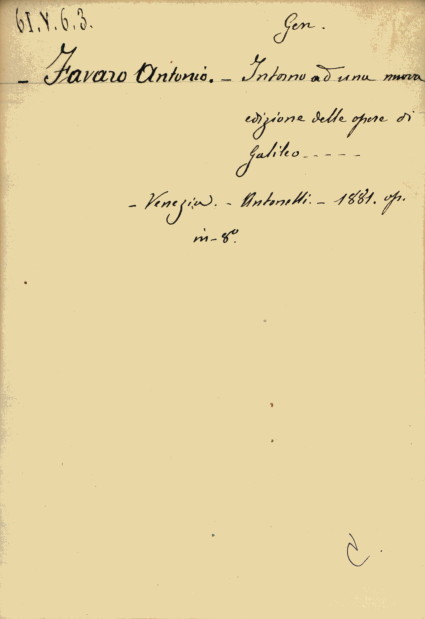 61.V.6.3.
Gen.
- Favaro Antonio. - Intorno ad una nuova
edizione delle opere di
Galileo - - - - -
- Venezia. - Antonelli. - 1881. op.
in-8º.
C.